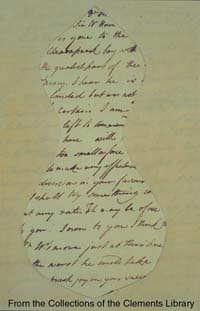 Sir W. Howe
is gone to the
Chesapeak bay with
the greatest part of the
army. I hear he is
landed but am not
certain. I am
left to command
here with
too small a force
to make any effectual
diversion in your favour
I shall try something
At any rate. It may be of use
to you. I own to you I think
Sr W's move just at this time
the worst he could take
much joy on your succes
From the Collections of the Clements Library